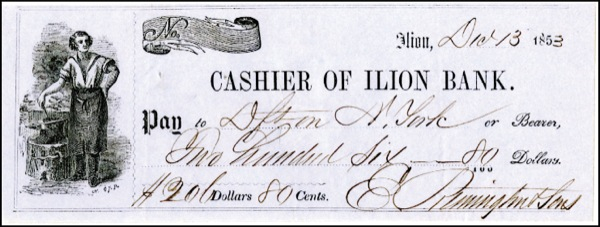 No.
Ilion, Dec 13 1853
CASHIER OF ILION BANK.
Pay to Dft on N. York or Bearer,
Two hundred Six — 80/100 Dollars.
$206 Dollars 80 Cents. E Remington & Sons